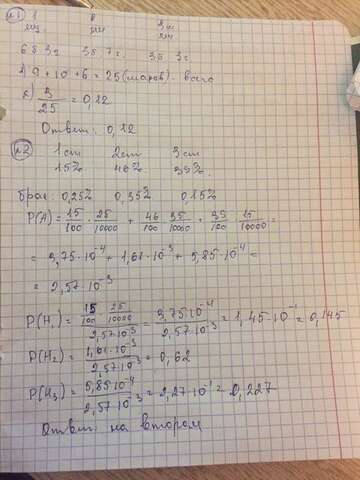 №1
1 2 3 ст
6б 3з 3б 7г 3б 3г
1) 9+10+6=25 (шаров) всего
2) 3/25 = 0,12
Ответ: 0,12
№2
1 ст 2 ст 3 ст
15% 46% 39%
брак: 0,25% 0,35% 0,15%
P(A) = 15/100 · 25/10000 + 46/100 · 35/10000 + 39/100 · 15/10000 =
= 3,75·10⁻⁴ + 1,61·10⁻³ + 5,85·10⁻⁴ =
= 2,57·10⁻³
P(H₁) = (15/100 · 25/10000)/(2,57·10⁻³) = (3,75·10⁻⁴)/(2,57·10⁻³) = 1,45·10⁻¹ = 0,145
P(H₂) = (1,61·10⁻³)/(2,57·10⁻³) = 0,62
P(H₃) = (5,85·10⁻⁴)/(2,57·10⁻³) = 2,27·10⁻¹ = 0,227
Ответ: на втором